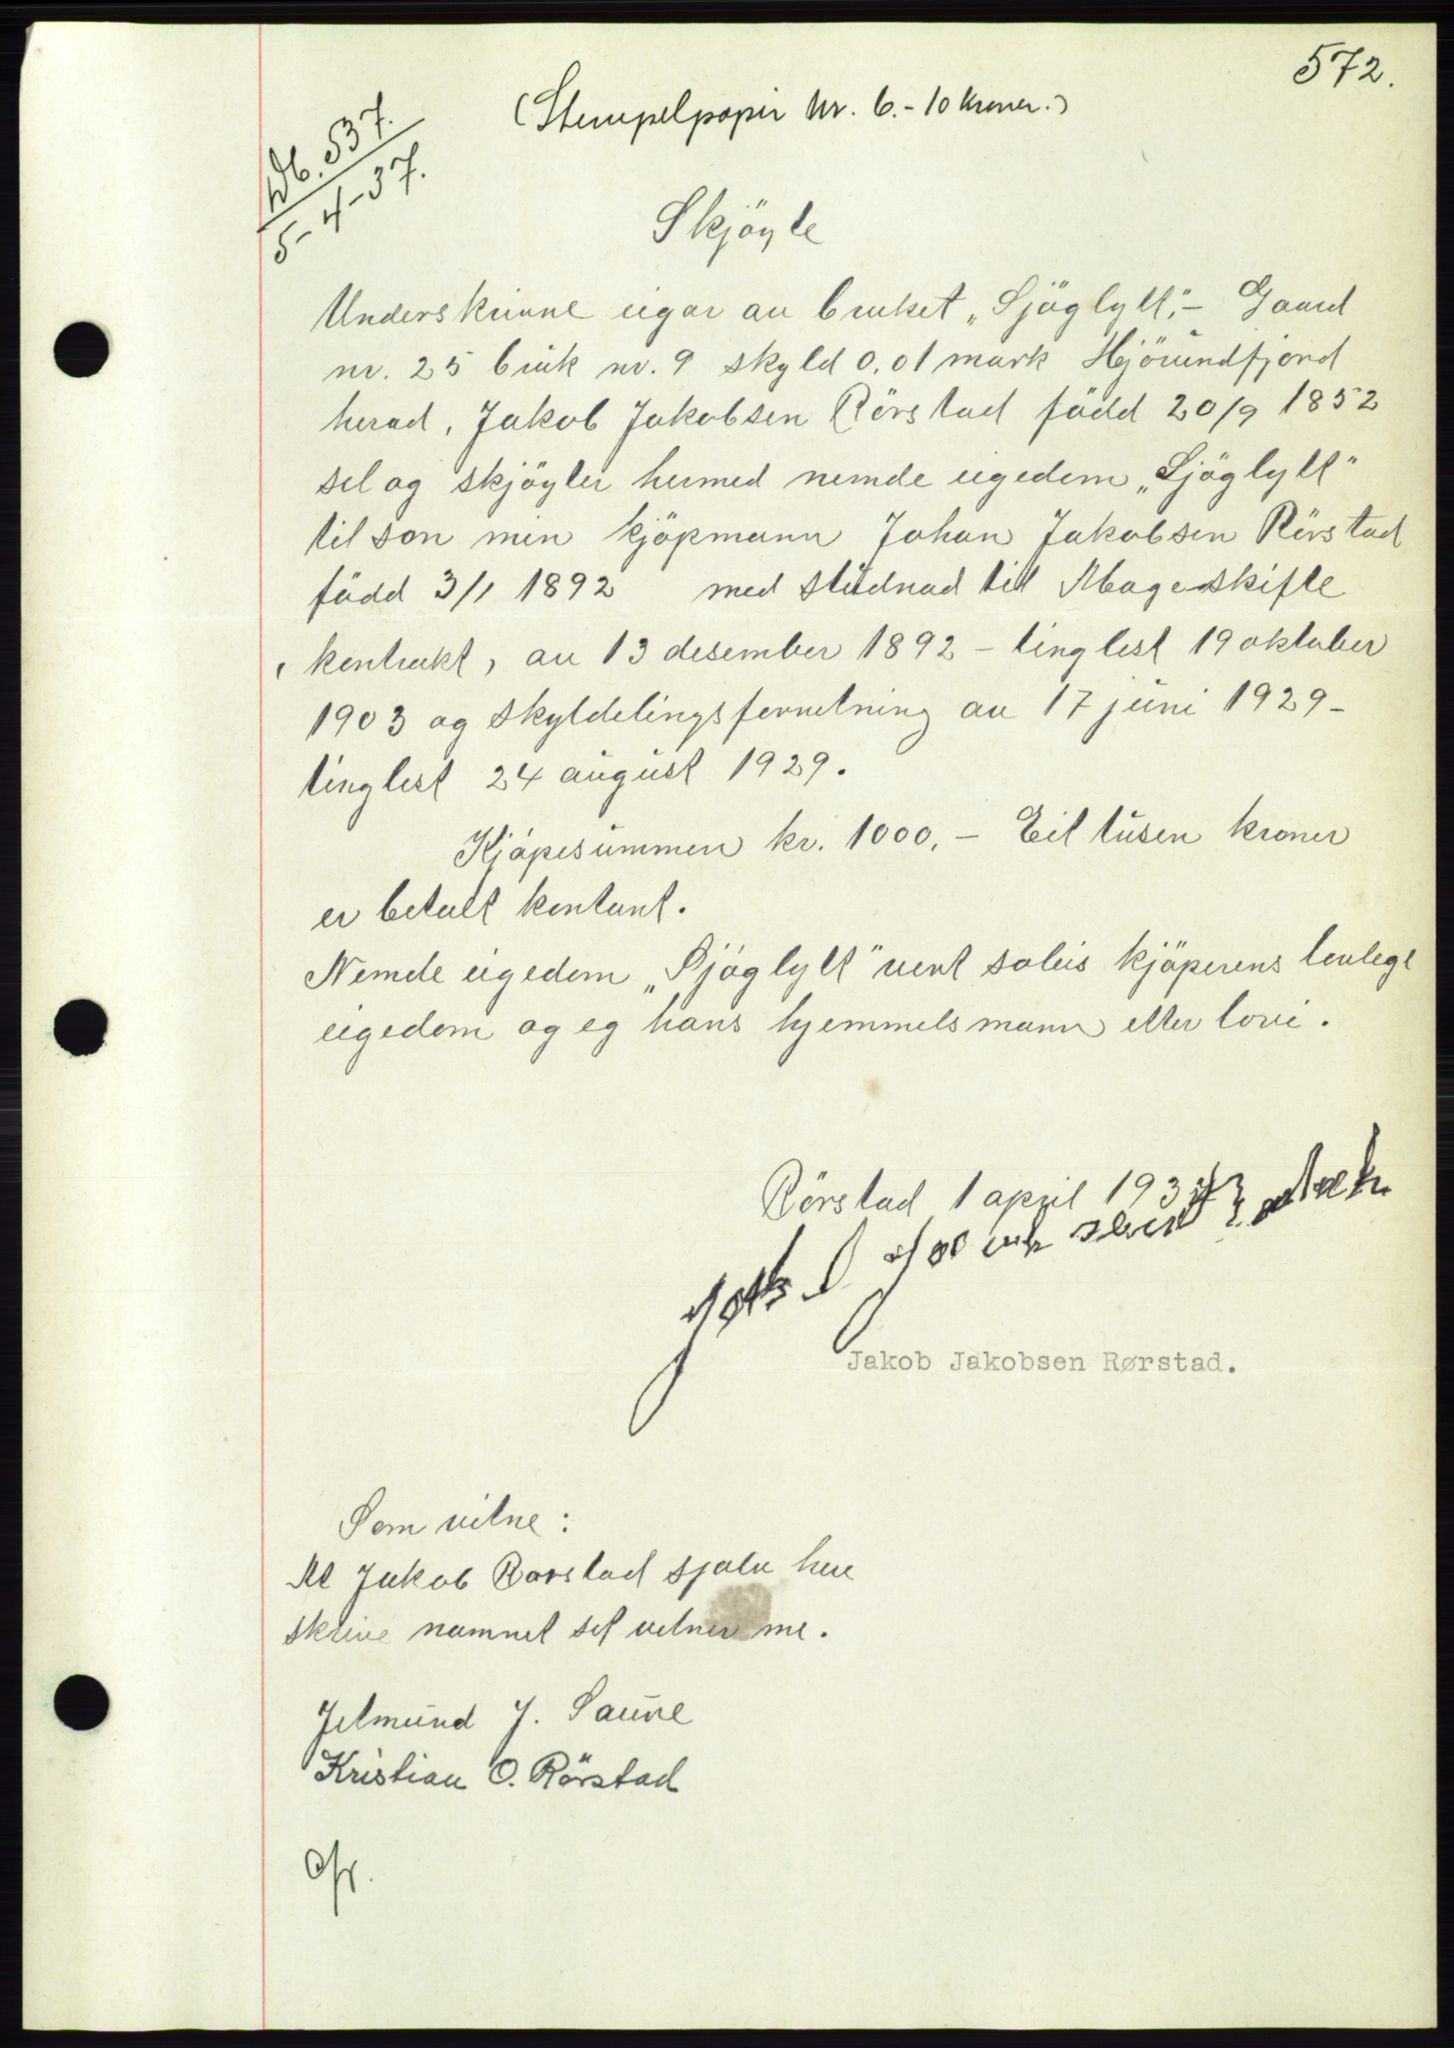 572.
(Stempelpapir Nr. 6.- 10 kroner.)
Db. 537.
5-4-37.
Skjöyte
Underskrivne eigar av bruket „Sjöglytt”,- Gaard
nr. 25 bruk nr. 9 skyld 0,01 mark Hjörundfjord
herad, Jakob Jakobsen Rörstad född 20/9 1852
sel og skjöyter hermed nemde eigedom „Sjöglytt”
til son min kjöpmann Johan Jakobsen Rörstad
född 3/1 1892 med studnad til Mageskifte
kontrakt, av 13 desember 1892 - tinglest 19 oktober
1903 og skyldelingsforretning av 17 juni 1929 -
tinglest 24 august 1929.
Kjöpesummen kr. 1000,- Eit tusen kroner
er betalt kontant.
Nemde eigedom „Sjöglytt” vert soleis kjöperens lovlege
eigedom og eg hans hjemmelsmann etter lovi.
Rörstad 1 april 1937
Jakob Jakobsen Rørstad.
Som vitne:
At Jakob Rorstad sjolv heve
skrive namnet sit vitner me.
Jetmund J. Saure
Kristian O. Rörstad